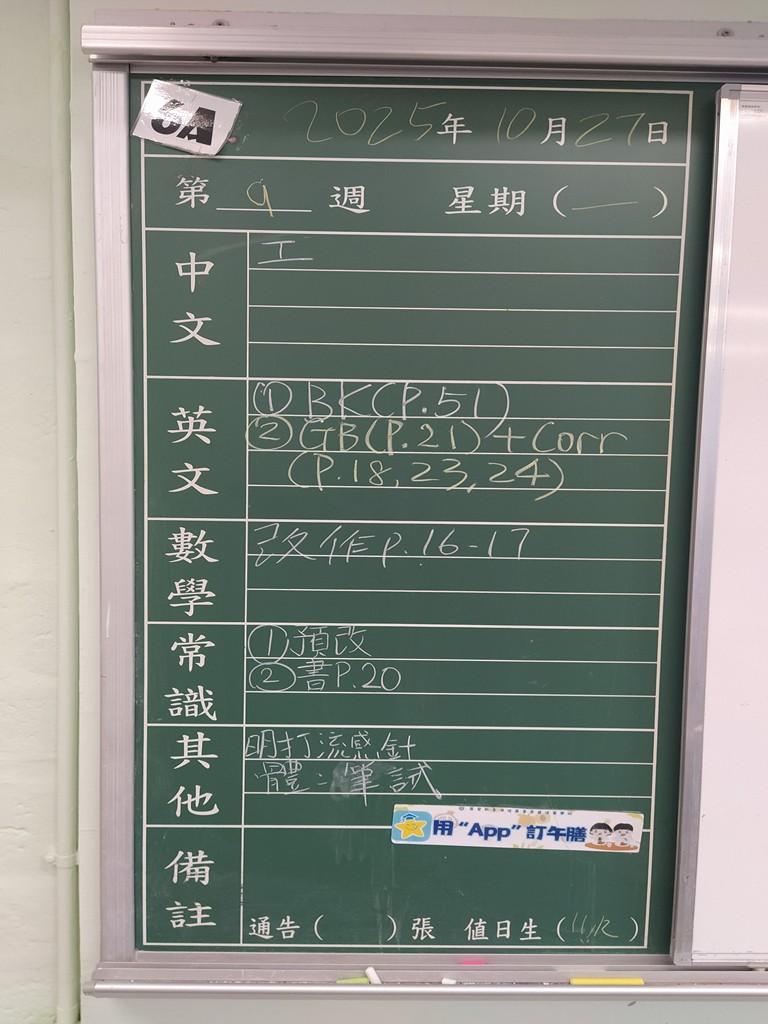 6A
2025年10月27日
第9週 星期(一)
中文
工
英文
① BK(P.51)
② GB(P.21)+Corr
(P.18,23,24)
數學
改作p.16-17
常識
①預改
②書P.20
其他
明打流感針
體:筆試
用“App”訂午膳
備註
通告( )張 值日生(11,12)